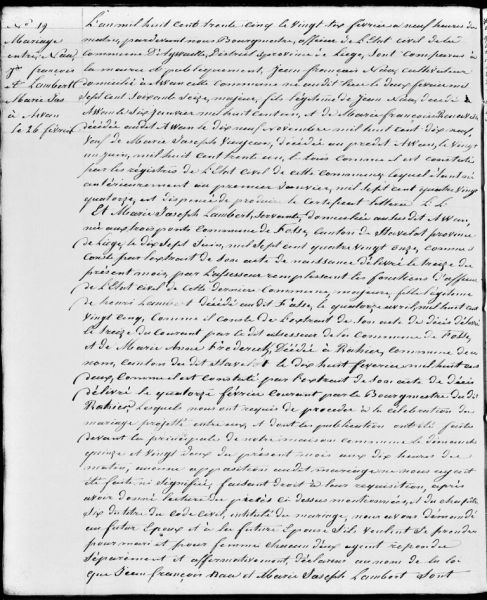 N.° 19
Mariage
entre Naa,
Jn françois
et Lambert
Marie Jos
à Awan
le 26 février
L'an mil huit cent trente cinq le vingt six février a neuf heures du
matin, pardevant nous Bourgmestre, officier de l'Etat civil de la
commune D'Aywaille, District & province de Liege, sont comparus à
la maison de publiquement, Jean françois Naa, cultivateur
domicilié à Awan cette commune né audit lieu le deux février
sept cent soixante seize, majeur, fils légitime de Jean Naa, décédé à
Awan le six janvier mil huit cent un, et de Marie françoise
décédée audit Awan le dix neuf novembre mil huit cent dix neuf,
Veuf de Marie Joseph Vieujean, décédée au prédit Awan, le vingt
un juin, mil huit cent trente un, le tous comme il est constaté
par les régistres de l'Etat civil de cette commune, lequel étant né
antérieurement au premier janvier, mil sept cent quatre vingt
quatorze, est dispensé de produire le certificat
Et Marie Joseph Lambert, servante, domiciliée audit Awan,
née aux trois ponts commune de Fosse, canton de Stavelot province
de Liege, le dix sept juin, mil sept cent quatre vingt onze, comme
conste par l'extrait de son acte de naissance délivré le treize du
présent mois, par l'assesseur remplissant les fonctions d'officier
de l'Etat civil de cette dernier commune, majeure, fille légitime
de henri Lambert décédé audit Fosse, le quatorze avril, mil huit cent
vingt cinq, comme il conste de l'extrait de son acte de décès délivré
le treize du courant par le dit assesseur de la commune de Fosse,
et de Marie Anne Frederick, Décédée à Rahier, commune du
nom, canton du dit Stavelot le dix huit février mil huit cent
deux, comme il est constaté par l'extrait de son acte de décès
délivré le quatorze février courant par le Bourgmestre du dit
Rahier, Lesquels nous ont requis de procéder à la célébration du
mariage projetté entre eux et dont les publication ont été faites
devant la principale de notre maison commune le dimanche
quinze et vingt deux du présent mois aux dix heures du
matin, aucune opposition audit mariage ne nous ayant
été faite ni signifiée, faisant droit à leur requisition, après
avoir donné lecture des pièces ci dessus mentionnées, et du chapitre
six du titre du Code Civil, intitulé du mariage, nous avons demandé
au futur Epoux et à la future Epouse s'ils veulent se prendre
pour mari et pour femme chacun d'eux ayant repondu
séparément et affirmativement, déclarons au nom de la loi
que Jean françois Naa et Marie Joseph Lambert sont